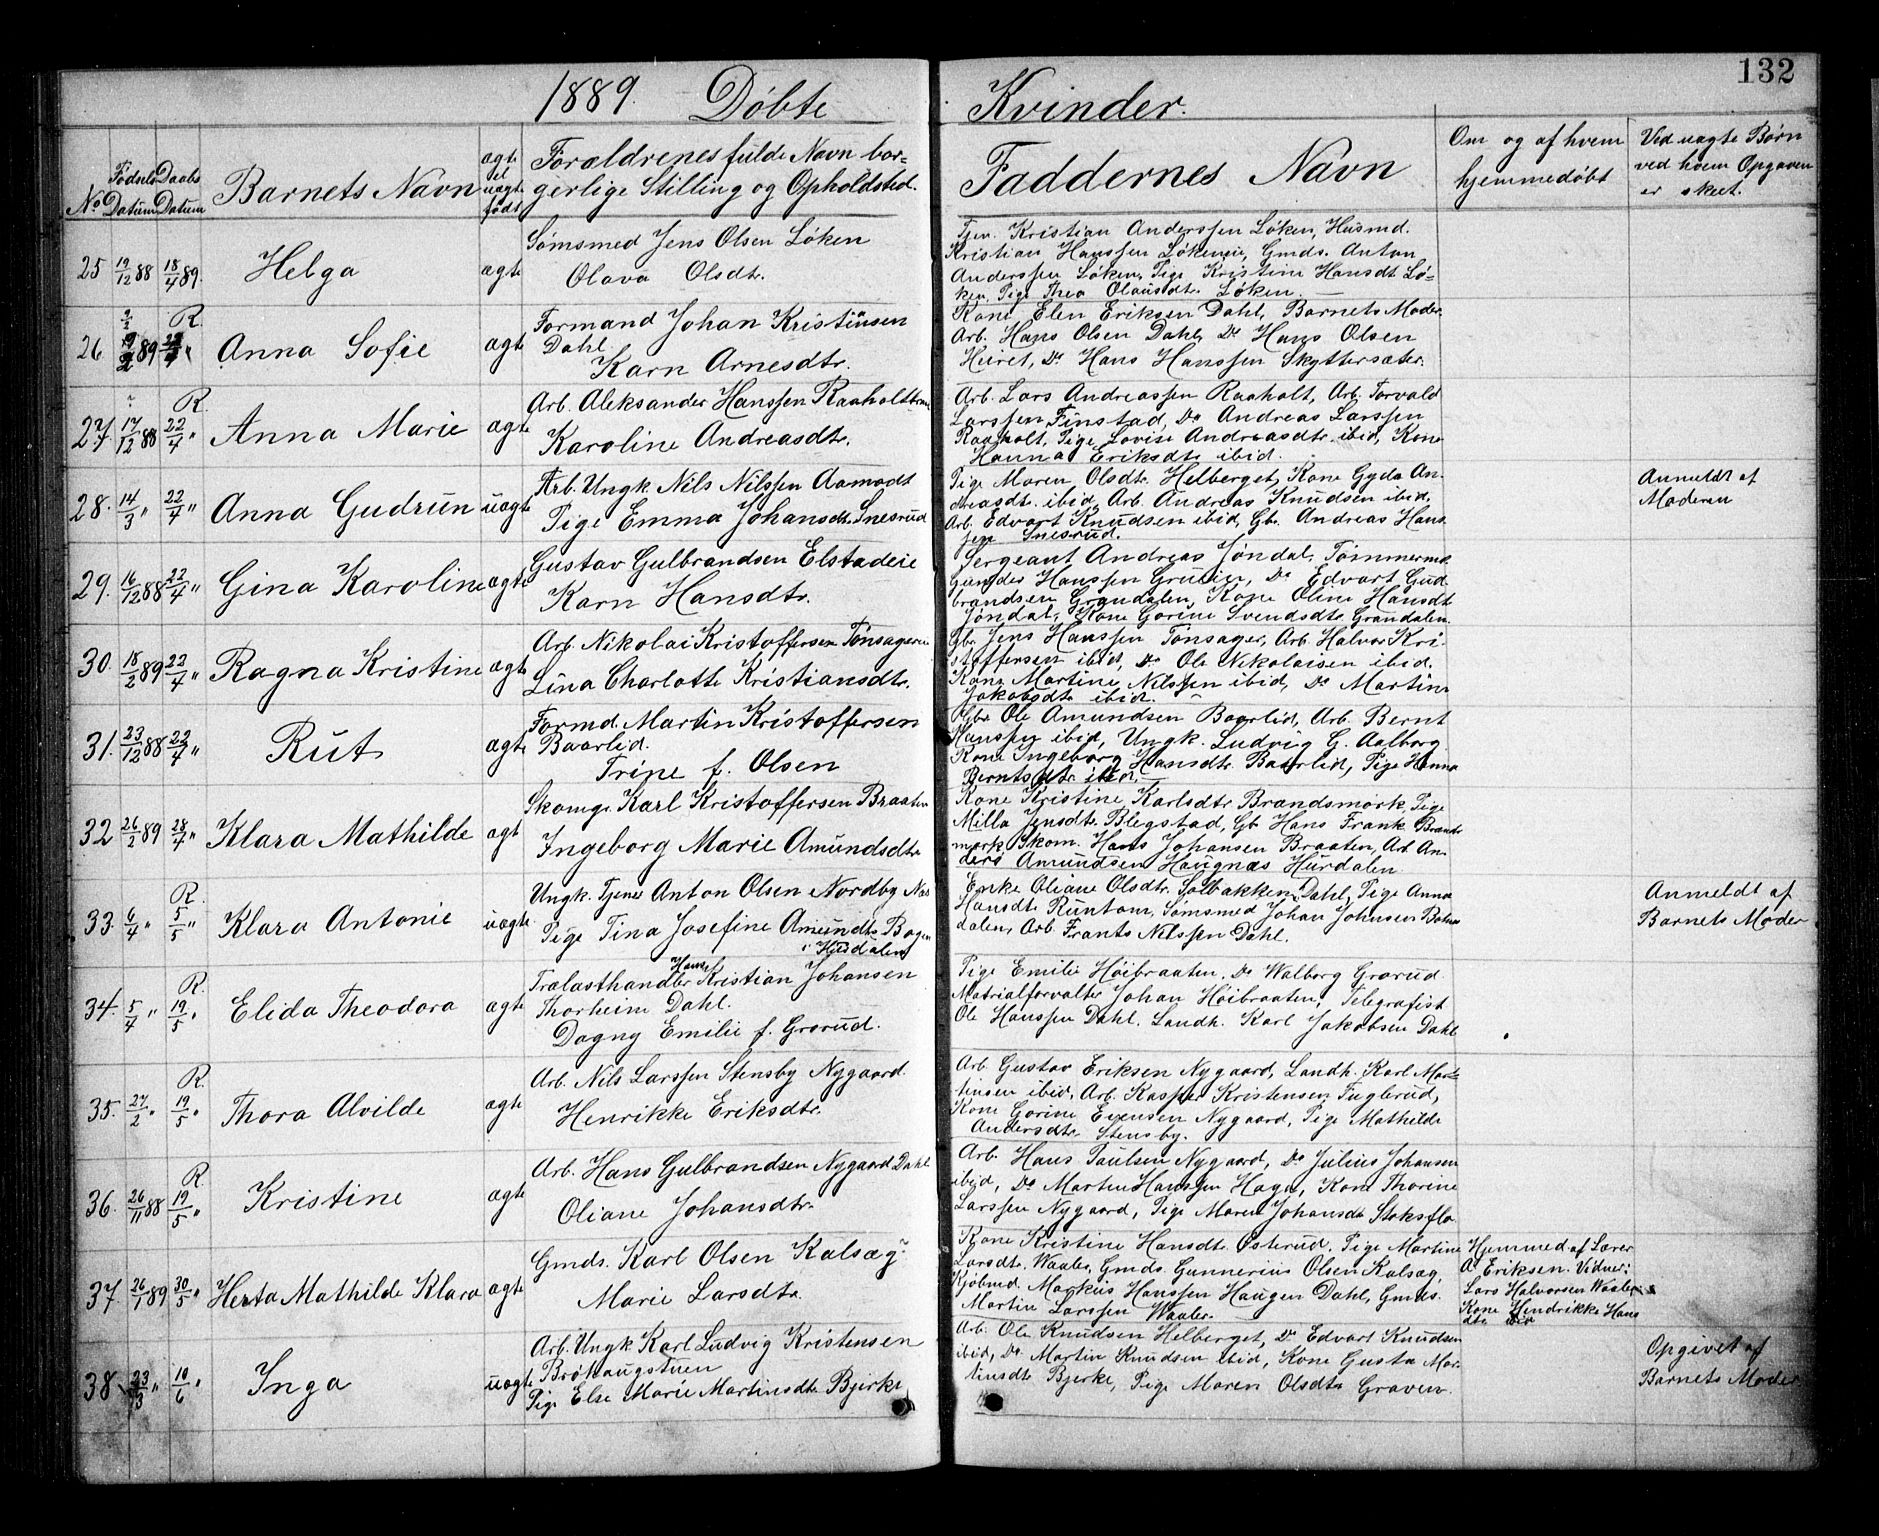 132
1889. Døbte Kvinder.
No Fødsels Datum Daabs Datum Barnets Navn ægte el uægte født Forældrenes fulde Navn borgerlige Stilling og Opholdsted. Faddernes Navn Om og af hvem hjemmedøbt Ved uægte Børn ved hvem Opgaven er skeet.
25 19/12 88 18/4 89. Helga ægte
Sømsmed Jens Olsen Løken
Olava Olsdtr.
Tjen. Kristian Anderssen Løken, Husmd.
Kristian Hanssen Løkeneie, Gmds. Anton
Anderssen Løken, Pige Kristine Hansdt Lø-
ken, Pige Thea Olausdtr. Løken
26 89 R. Anna Sofie ægte
Formand Johan Kristiansen
Dahl.
Karn Arnesdtr.
Kone Elen Eriksen Dahl, Barnets Moder
Arb. Hans Olsen Dahl, Do Hans Olsen
Do Hans Hanssen Skyttersæter.
27 17/12 88 R. 22/4 " Anna Marie ægte
Arb. Aleksander Hanssen
Karoline Andreasdtr.
Arb. Lars Andreassen Raaholt, Arb. Torvald
Larssen Finstad, Do Andreas Larssen
Raaholt, Pige Lovise Andreasdtr. ibid, Kone
Hanna Eriksdtr ibid.
28. 14/3 " 22/4 " Anna Gudrun uægte
Arb. Ungk. Nils Nilssen Aamodt
Pige Emma Johansdt. Snesrud
Pige Maren Olsdtr. Helberget, Kone Gyda An-
dreasdt. ibid, Arb. Andreas Knudsen ibid,
Arb. Edvart Knudsen ibid, Gbr. Andreas Hans-
sen Snesrud.
Anmeldt af
Moderen
29. 16/12 88 22/4 " Gina Karoline ægte
Gustav Gulbrandsen Elstadeie
Karn Hansdtr.
Sergeant Andreas Jøndal, Tømmermd.
Gunder Hanssen Do Edvart Gud-
brandsen Grandalen, Kone Oline Hansdt
Jøndal, Kone Gorine Svendsdtr Grandalen.
30. 18/2 89 22/4 " Ragna Kristine ægte
Arb. Nikolai Kristoffersen Tønsagereie
Lina Charlotte Kristiansdtr.
Gbr. Jens Hanssen Tønsager, Arb. Halvor Kri-
stoffersen ibid, Do Ole Nikolaisen ibid,
Kone Martine Nilssen ibid, Do Martine
Jakobsdtr ibid.
31. 23/12 88 22/4 " Rut ægte
Formd. Martin Kristoffersen
Baarlid.
Trine f. Olsen
Gbr. Ole Amundsen Baarlid, Arb. Bernt
Hanssen ibid, Ungk. Ludvig G. Aalborg
Kone Ingeborg Hansdtr. Baarlid, Pige Hanna
Berntsdtr. ibid.
32 26/2 89 28/4 " Klara Mathilde ægt
Skomgr. Karl Kristoffersen Braaten
Ingeborg Marie Amundsdtr.
Kone Kristine Karlsdtr Brandsmork, Pige
Milla Jensdtr. Blegstad, Gb. Hans Frank Brands-
mork, Skom. Hans Johansen Braaten, Arb. An-
ders Amundsen Haugnæs Hurdalen
33. 6/4 " R. 5/5 " Klara Antonie uægte
Ungk. Tjener Anton Olsen Nordby Næs
Pige Tina Josefine Amundtr.
i Hurdalen
Enke Oliane Olsdtr. Solbakken Dahl, Pige Anna
Hansdtr Sømsmed Johan Johnsen
dalen, Arb. Frants Nilssen Dahl.
Anmeldt af
Barnets Moder
34. 5/4 " R. 19/5 " Elida Theodora ægte
Trælasthandler Hans Kristian Johansen
Thorheim Dahl.
Dagny Emilie f. Grorud.
Pige Emilie Høibraaten, Do Walborg Grorud
Matrialforvalter Johan Høibraaten, Telegrafist
Ole Hanssen Dahl, Landh. Karl Jakobsen Dahl
35. 27/2 " R. 19/5 " Thora Alvilde ægte
Arb. Nils Larssen Stensby Nygaard
Henrikke Eriksdtr.
Arb. Gustav Eriksen Nygaard, Landh. Karl Mar-
tinsen ibid, Arb. Kasper Kristensen Fuglerud,
Kone Gorine Evensen Nygaard, Pige Mathilde
Andersdtr Stensby.
36. 26/11 88 R. 19/5 " Kristine ægte
Arb. Hans Gulbrandsen Nygaard Dahl
Oliane Johansdtr.
Arb. Hans Paulsen Nygaard, Do Julius Johansen
ibid, Do Martin Hanssen Haga, Kone Thorine
Larssen Nygaard, Pige Maren Johansdtr Stoksflo
37. 26/1 89 30/5 " Herta Mathilde Klara ægte
Gmds. Karl Olsen Kalsæg
Marie Larsdtr.
Kone Kristine Hansdt. Østerud, Pige Martine
Larsdtr. Waaler, Gmds. Gunnerius Olsen Kalsæg,
Kjøbmd. Markus Hanssen Haugen Dahl, Gmds.
Martin Larssen Waaler.
Hjemmed af Lærer
A. Eriksen. Vidner:
Lars Halvorsen Waaler
Kone Hendrikke Hans
dtr ibid
38 23/3 " 10/6 " Inga uægte
Arb. Ungk Karl Ludvig Kristensen
Brøhaugstuen
Pige Else Marie Martinsdtr Bjerke
Arb. Ole Knudsen Helberget, Do Edvart Knudsen
ibid, Do Martin Knudsen ibid, Kone Gusta Mar-
tinsdtr Bjerke, Pige Maren Olsdtr Graven.
Opgivet af
Barnets Moder